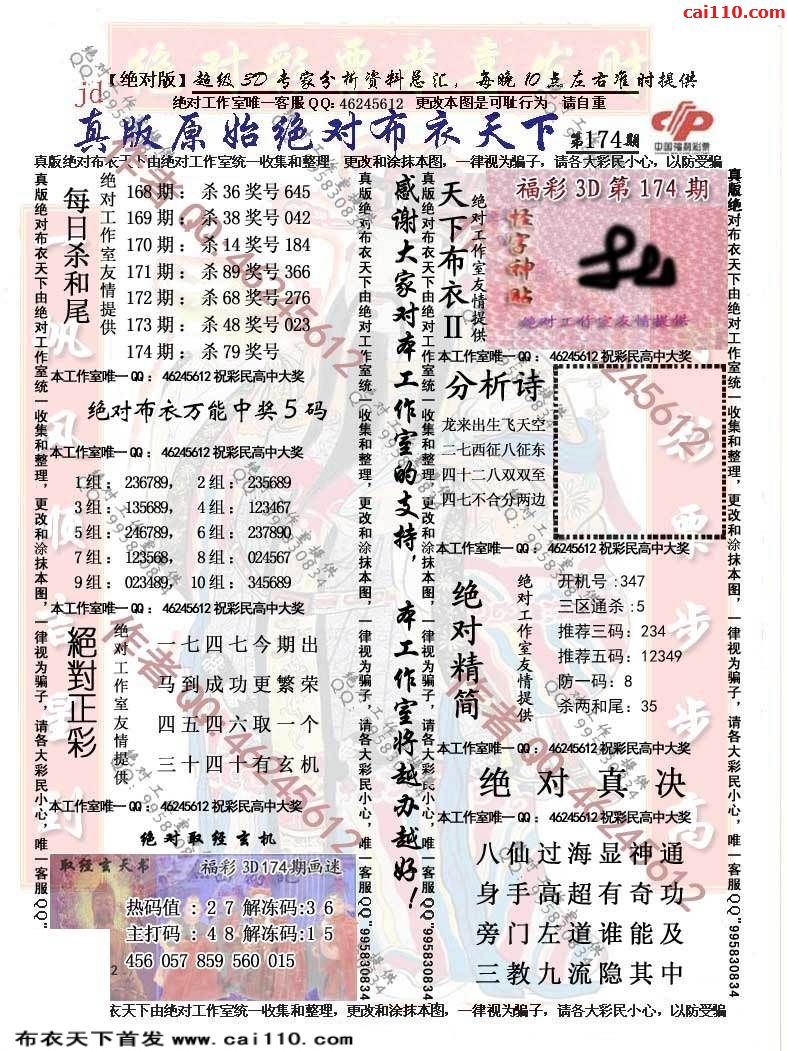 cai110.com
【绝对版】超级3D专家分析资料总汇，每晚10点左右准时提供
jd
绝对工作室唯一客服QQ: 46245612 更改本图是可耻行为 请自重
真版原始绝对布衣天下 第174期
中国福利彩票
真版绝对布衣天下由绝对工作室统一收集和整理，更改和涂抹本图，一律视为骗子，请各大彩民小心，以防受骗
每日杀和尾
绝对工作室友情提供
168期：杀36奖号645
169期：杀38奖号042
170期：杀14奖号184
171期：杀89奖号366
172期：杀68奖号276
173期：杀48奖号023
174期：杀79奖号
本工作室唯一QQ：46245612祝彩民高中大奖
绝对布衣万能中奖5码
本工作室唯一QQ：46245612祝彩民高中大奖
1组：236789， 2组：235689
3组：135689， 4组：123467
5组：246789， 6组：237890
7组：123568， 8组：024567
9组：023489， 10组：345689
本工作室唯一QQ：46245612祝彩民高中大奖
絕對正彩
绝对工作室友情提供
一七四七今期出
马到成功更繁荣
四五四六取一个
三十四十有玄机
本工作室唯一QQ：46245612祝彩民高中大奖
绝对取经玄机
取经玄天书 福彩3D174期画迷
热码值：27解冻码:36
主打码：48解冻码:15
456 057 859 560 015
感谢大家对本工作室的支持，本工作室将越办越好！
天下布衣II
绝对工作室友情提供
福彩3D第174期
怪字神贴
绝对工作室友情提供
本工作室唯一QQ：46245612祝彩民高中大奖
分析诗
龙来出生飞天空
二七西征八征东
四十二八双双至
四七不合分两边
本工作室唯一QQ：46245612祝彩民高中大奖
绝对精简
绝对工作室友情提供
开机号:347
三区通杀:5
推荐三码:234
推荐五码:12349
防一码:8
杀两和尾:35
本工作室唯一QQ：46245612祝彩民高中大奖
绝对真决
本工作室唯一QQ：46245612祝彩民高中大奖
八仙过海显神通
身手高超有奇功
旁门左道谁能及
三教九流隐其中
真版绝对布衣天下由绝对工作室统一收集和整理，更改和涂抹本图，一律视为骗子，请各大彩民小心，唯一客服QQ"995830834
衣天下由绝对工作室统一收集和整理，更改和涂抹本图，一律视为骗子，请各大彩民小心，以防受骗
布衣天下首发 www.cai110.com